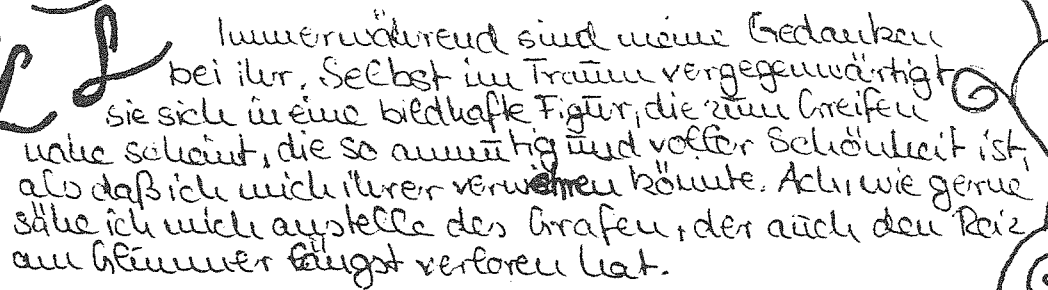 Immerwährend sind meine Gedanken
bei ihr. Selbst im Traum vergegenwärtigt
sie sich in eine bildhafte Figur, die zum Greifen
nahe scheint, die so anmutig und voller Schönheit ist,
als daß ich mich ihrer verwehren könnte. Ach, wie gerne
sähe ich mich anstelle des Grafen, der auch den Reiz
am Glimmer längst verloren hat.